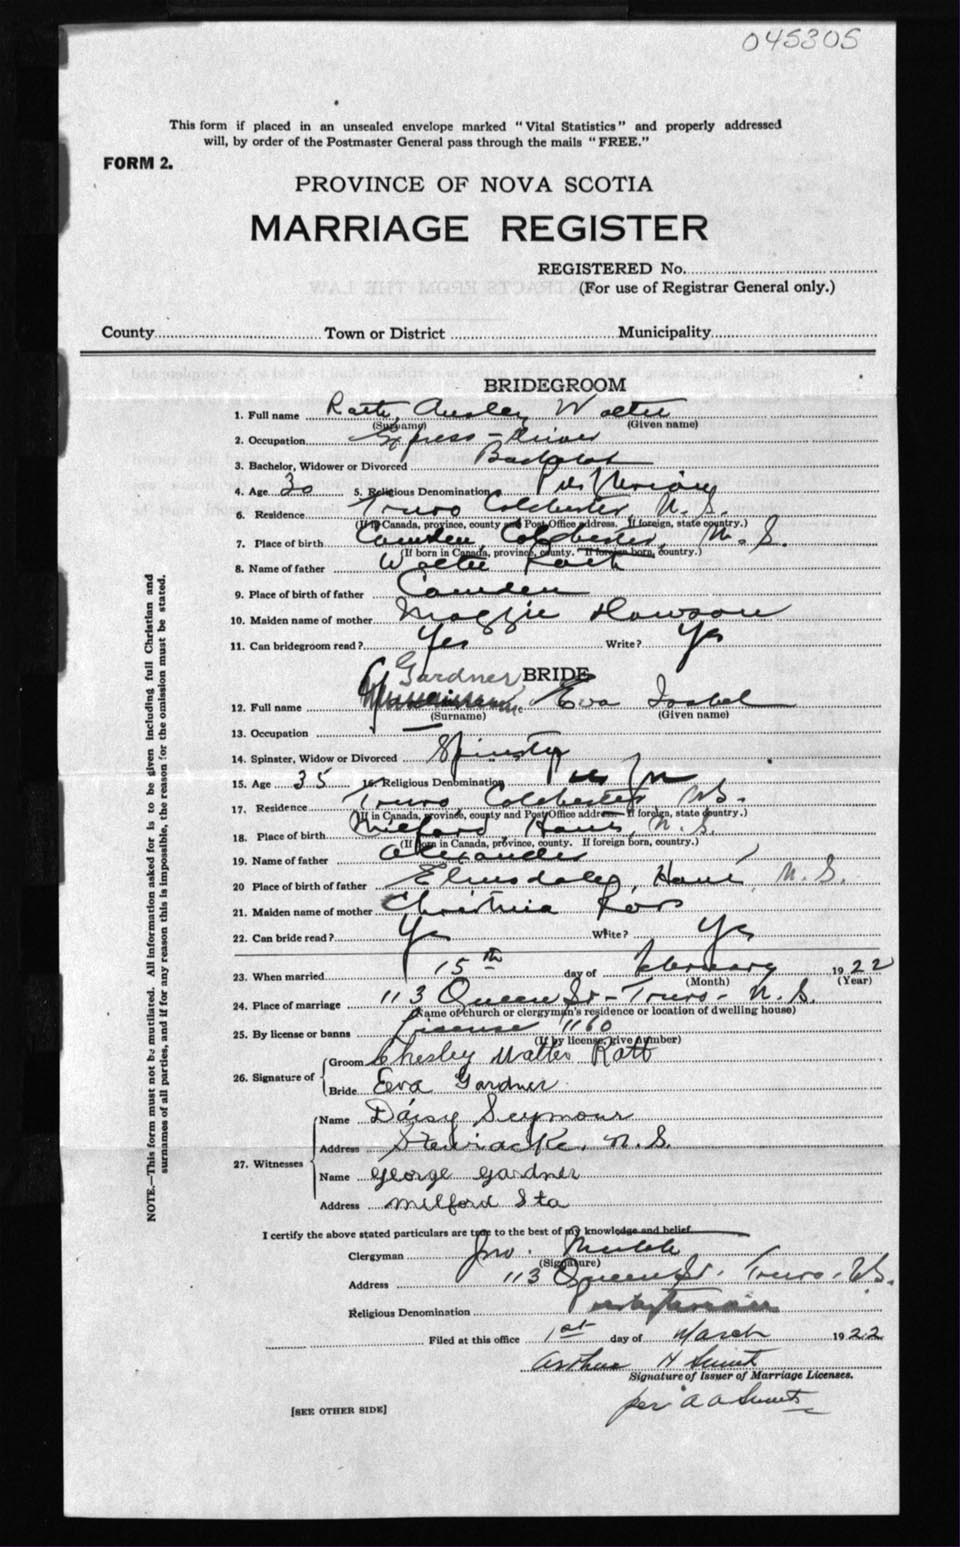 045305
This form if placed in an unsealed envelope marked "Vital Statistics" and properly addressed
will, by order of the Postmaster General pass through the mails "FREE."
FORM 2.
PROVINCE OF NOVA SCOTIA
MARRIAGE REGISTER
REGISTERED No.
(For use of Registrar General only.)
County Town or District Municipality
BRIDEGROOM
1. Full name Walter
(Surname) (Given name)
2. Occupation Express-driver
3. Bachelor, Widower or Divorced Bachelor
4. Age 30 5. Religious Denomination
6. Residence Truro Colchester, N.S.
(If in Canada, province, county and Post Office address. If foreign, state country.)
7. Place of birth Camden, Colchester, N.S.
(If born in Canada, province, county. If foreign born, country.)
8. Name of father Walter
9. Place of birth of father Camden
10. Maiden name of mother Maggie
11. Can bridegroom read? Yes Write? Yes
Gardner BRIDE
12. Full name Eva Isabel
(Surname) (Given name)
13. Occupation —
14. Spinster, Widow or Divorced Spinster
15. Age 35 16. Religious Denomination
17. Residence Truro Colchester N.S.
(If in Canada, province, county and Post Office address. If foreign, state country.)
18. Place of birth Milford, Hants, N.S.
(If born in Canada, province, county. If foreign born, country.)
19. Name of father Alexander
20 Place of birth of father Elmsdale, N.S.
21. Maiden name of mother Christina Ross
22. Can bride read? Yes Write? Yes
23. When married 15th day of February 1922
(Month) (Year)
24. Place of marriage 113 Queen St - Truro - N.S.
(Name of church or clergyman's residence or location of dwelling house)
25. By license or banns License 1160
(If by license, give number)
26. Signature of
Groom Chesley Walter Ratt
Bride Eva Gardner
27. Witnesses
Name Daisy Seymour
Address Stewiacke, N.S.
Name George Gardner
Address Milford Sta
I certify the above stated particulars are true to the best of my knowledge and belief.
Clergyman Jno.
(Signature)
Address 113 Queen St. Truro. N.S.
Religious Denomination Presbyterian
Filed at this office 1st day of March 1922
Arthur H
Signature of Issuer of Marriage Licenses.
per A A
[SEE OTHER SIDE]
NOTE.—This form must not be mutilated. All information asked for is to be given including full Christian and
surnames of all parties, and if for any reason this is impossible, the reason for the omission must be stated.